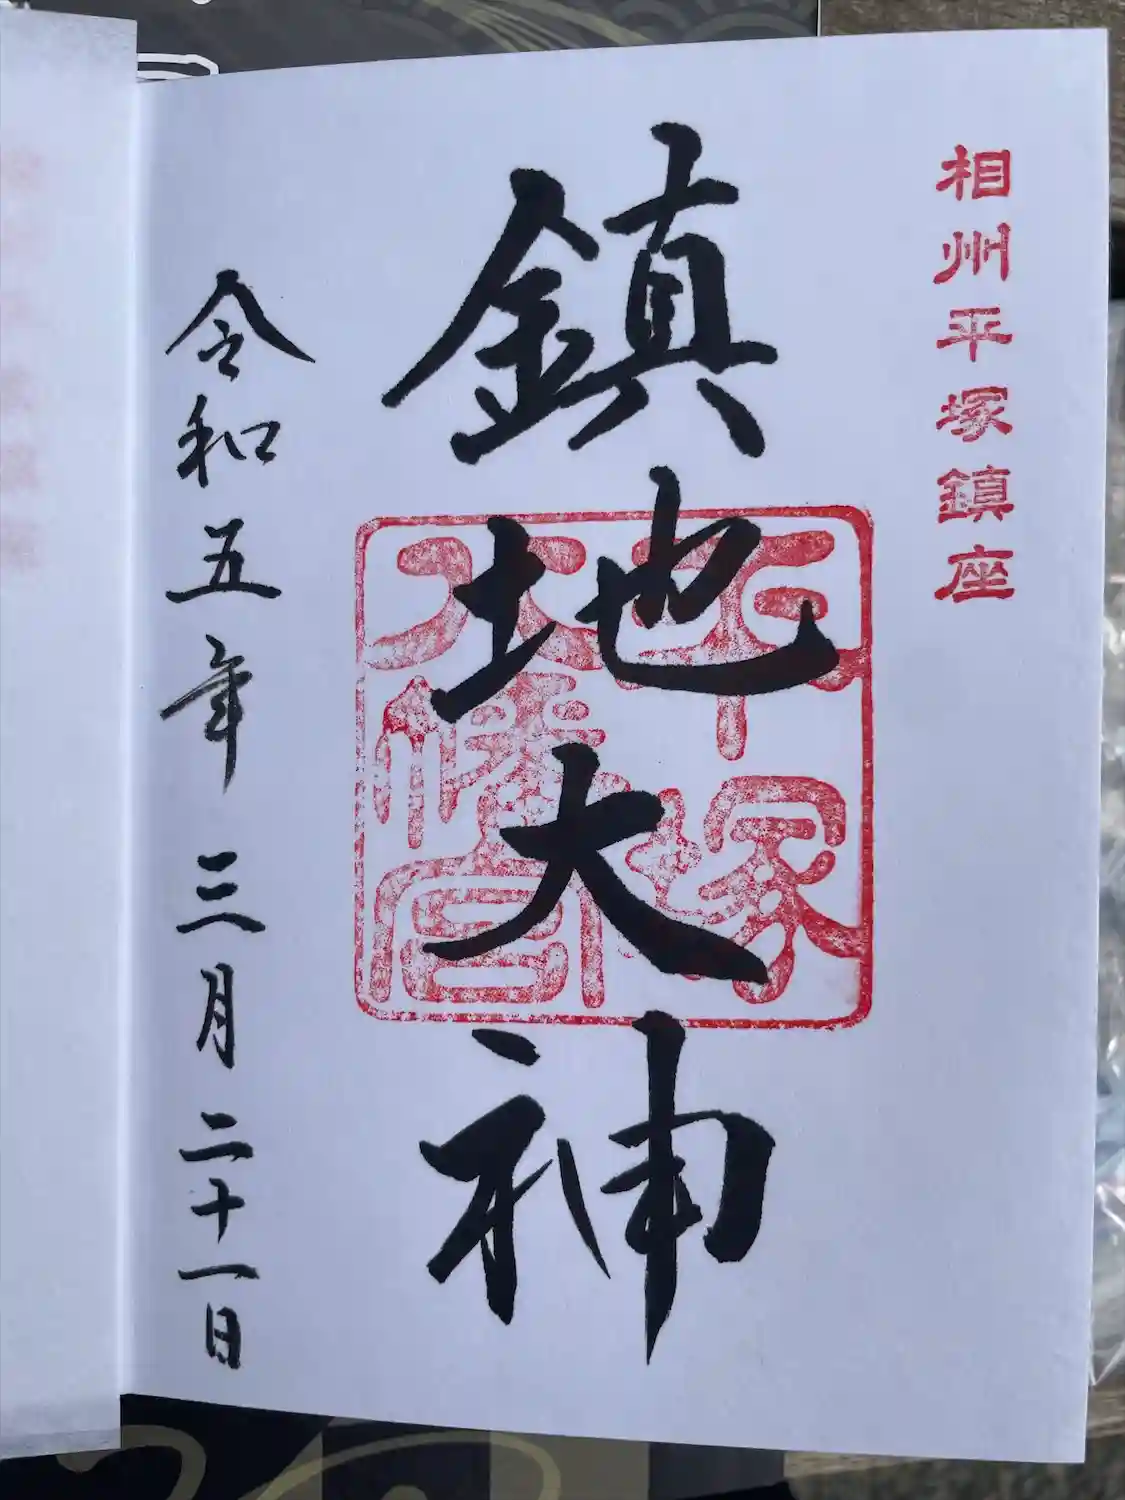 相州平塚鎮座
鎮地大神
平塚
八幡宮
令和五年三月二十一日